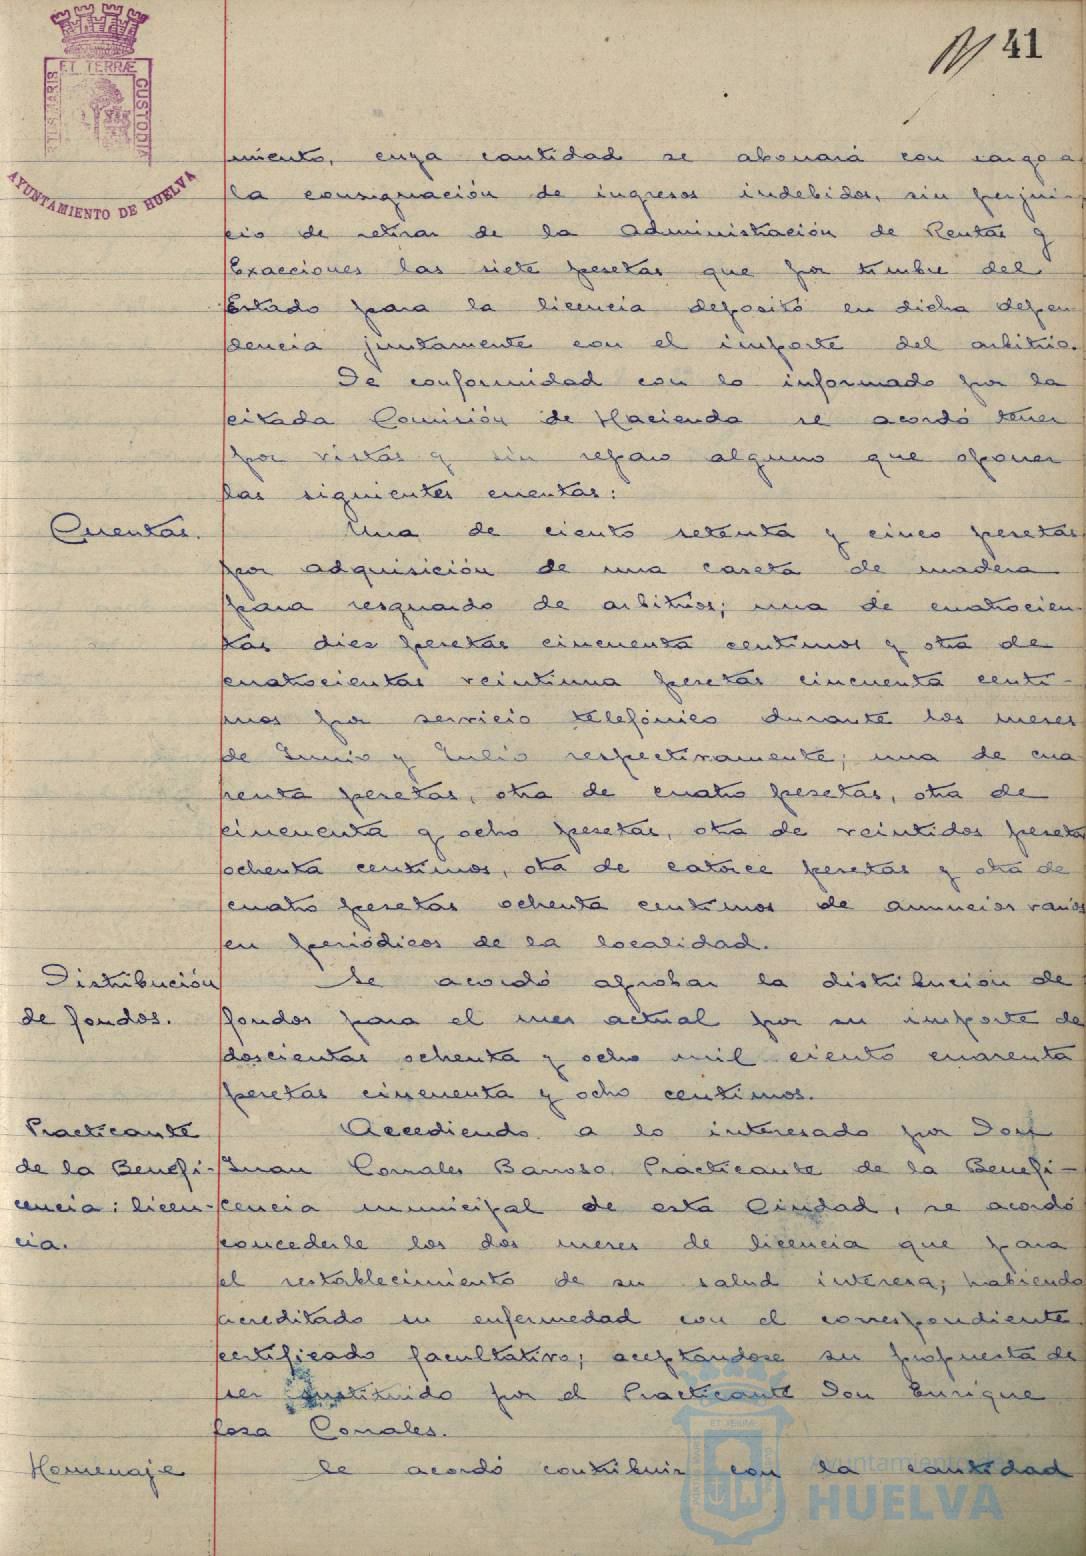 41
ET TERRÆ
CUSTODIA
AYUNTAMIENTO DE HUELVA
miento, cuya cantidad se abonará con cargo a
la consignación de ingresos indebidos, sin perjui-
cio de retirar de la Administración de Rentas y
Exacciones las siete pesetas que por timbre del
Estado para la licencia depositó en dicha depen
dencia juntamente con el importe del arbitrio.
De conformidad con lo informado por la
citada Comisión de Hacienda se acordó tener
por vistas y sin reparo alguno que oponer
las siguientes cuentas:
Cuentas. Una de ciento setenta y cinco pesetas
por adquisición de una caseta de madera
para resguardo de arbitrios; una de cuatrocien-
tas diez pesetas cincuenta centimos y otra de
cuatrocientas veintiuna pesetas cincuenta centi-
mos por servicio telefónico durante los meses
de Junio y Julio respectivamente; una de cua
renta pesetas, otra de cuatro pesetas, otra de
cincuenta y ocho pesetas, otra de veintidos pesetas
ochenta centimos, otra de catorce pesetas y otra de
cuatro pesetas ochenta centimos de anuncios varios
en periódicos de la localidad.
Distribución Se acordó aprobar la distribución de
de fondos. fondos para el mes actual por su importe de
doscientas ochenta y ocho mil ciento cuarenta
pesetas cincuenta y ocho centimos.
Practicante Accediendo a lo interesado por Don
de la Benefi- Juan Corrales Barroso, Practicante de la Benefi-
cencia: licen- cencia municipal de esta Ciudad, se acordó
cia. concederle los dos meses de licencia que para
el restablecimiento de su salud interesa; habiendo
acreditado su enfermedad con el correspondiente
certificado facultativo; aceptandose su propuesta de
ser sustituido por el Practicante Don Enrique
Corrales.
Homenaje Se acordó contribuir con la cantidad
Ayuntamiento de
HUELVA